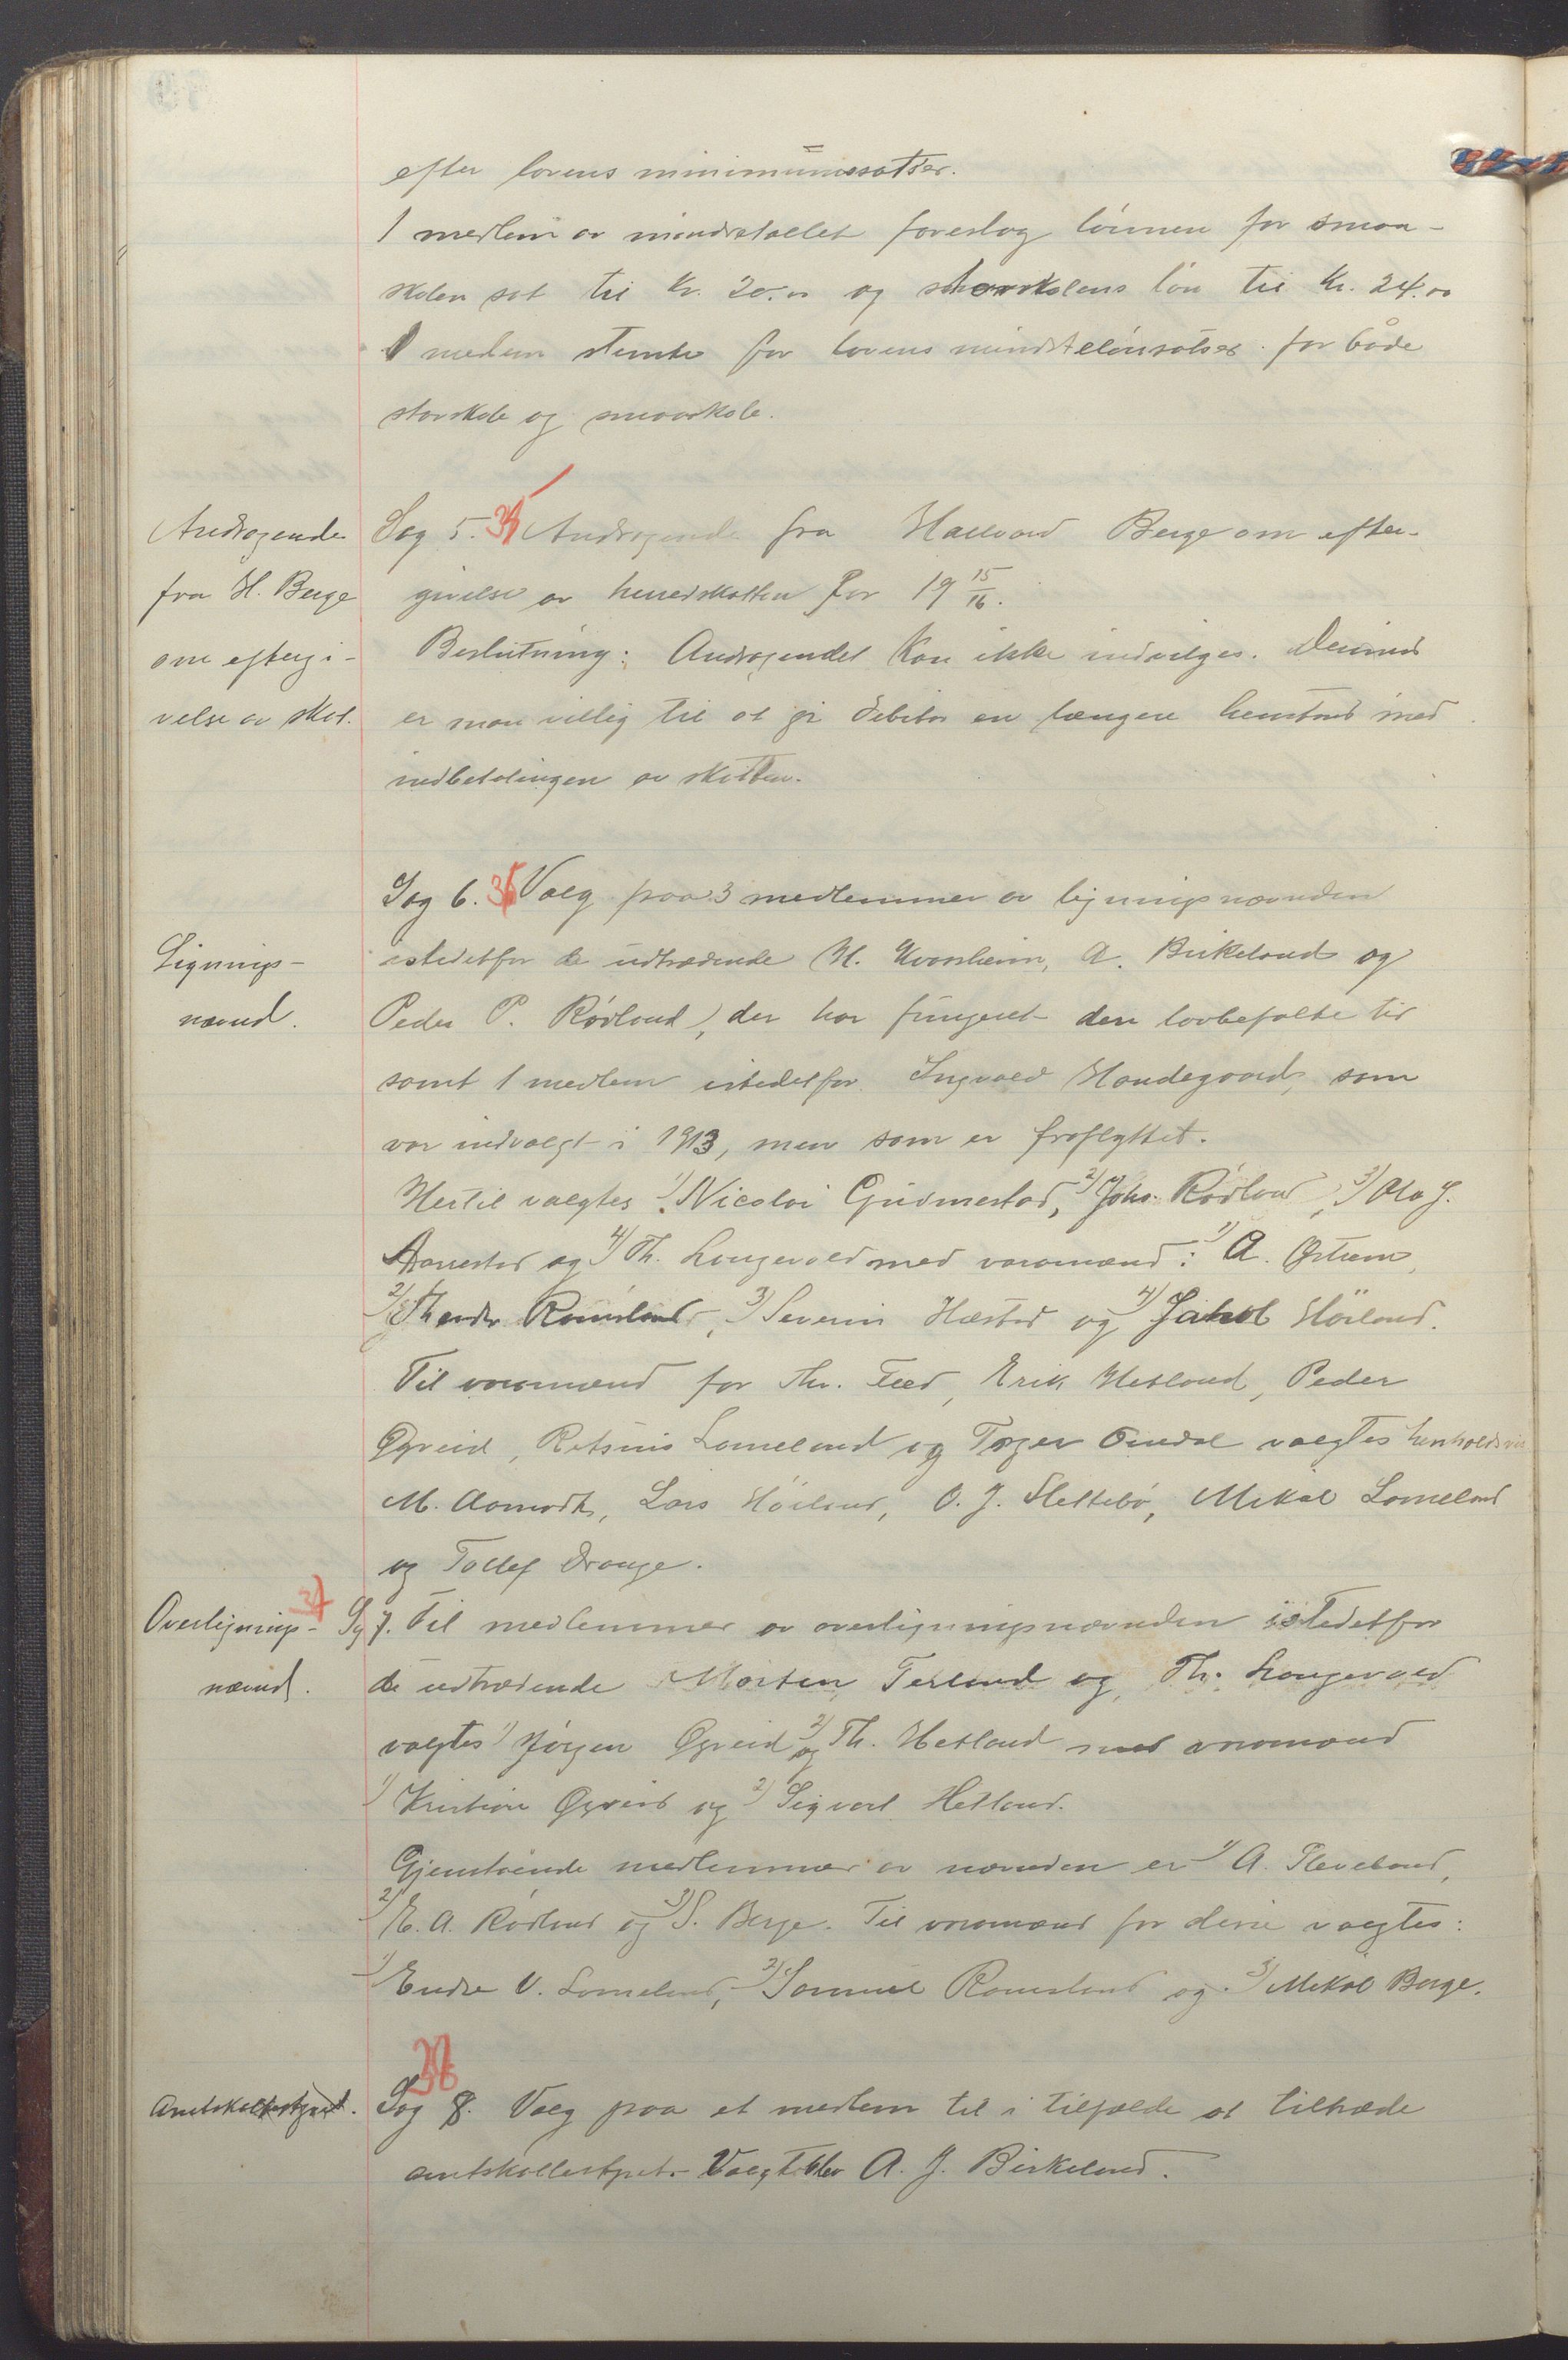 efter lovens minimumssatser.
1 medlem av mindretallet foreslog lønnen for smaa-
skolen sat til kr. 20.00 og storskolens løn til kr. 24.00
1 medlem stemte for lovens mindstelønsatser for både
storskole og smaaskole.
Andragende
fra H. Berge
om eftergi-
velse av skat.
Sag 5. 35 Andragende fra Hallvard Berge om efter-
givelse av herredskatten for 19 15/16.
Beslutning: Andragendet kan ikke indvilges. Derimod
er man villig til at gi debitor en længere henstand med
indbetalingen av skatten.
Lignings-
nævnd.
Sag 6. 36 Valg paa 3 medlemmer av ligningsnævnden
istedetfor de udtrædende H. Kvansheim, A. Birkeland og
Peder P. Rødland, der har fungeret den lovbefalte tid
samt 1 medlem istedetfor Ingvald Handegaard, som
var indvalgt i 1913, men som er fraflyttet.
Hertil valgtes 1) Nicolai Gudmestad, 2) Johs. Rødland, 3) Ola J.
Aarrestad og 4) Th. Longevald med varamænd: 1) A. Østrem,
2) Rameland, 3) Severin Hæstad og 4) Jakob Høiland.
Til varamænd for Chr. Eled, Erik Hetland, Peder
Øgreid, Rasmus Lomeland og Torger Omdal valgtes henholdsvis
M. Aamodt, Lars Høiland, O. J. Slettebø, Mikal Lomeland
og Tollef Drange.
Overlignings-
nævnd.
37
Sag 7. Til medlemmer av overligningsnævnden istedetfor
de udtrædende Morten Tesland og Th. Longevald
valgtes 1) Jørgen Øgreid og 2) Th. Hetland med varamænd
1) Kristian Øgreid og 2) Sigvart Hetland.
Gjenstående medlemmer av nævnden er 1) A. Fleveland,
2) E. A. Rødland og 3) S. Berge. Til varamænd for disse valgtes:
1) Endre V. Lomeland, 2) Samuel Rameland og 3) Mikal Berge.
Amtskattestyret.
38
Sag 8. Valg paa et medlem til i tilfælde at tiltræde
amtskattestyret. Valgt blev A. J. Birkeland.